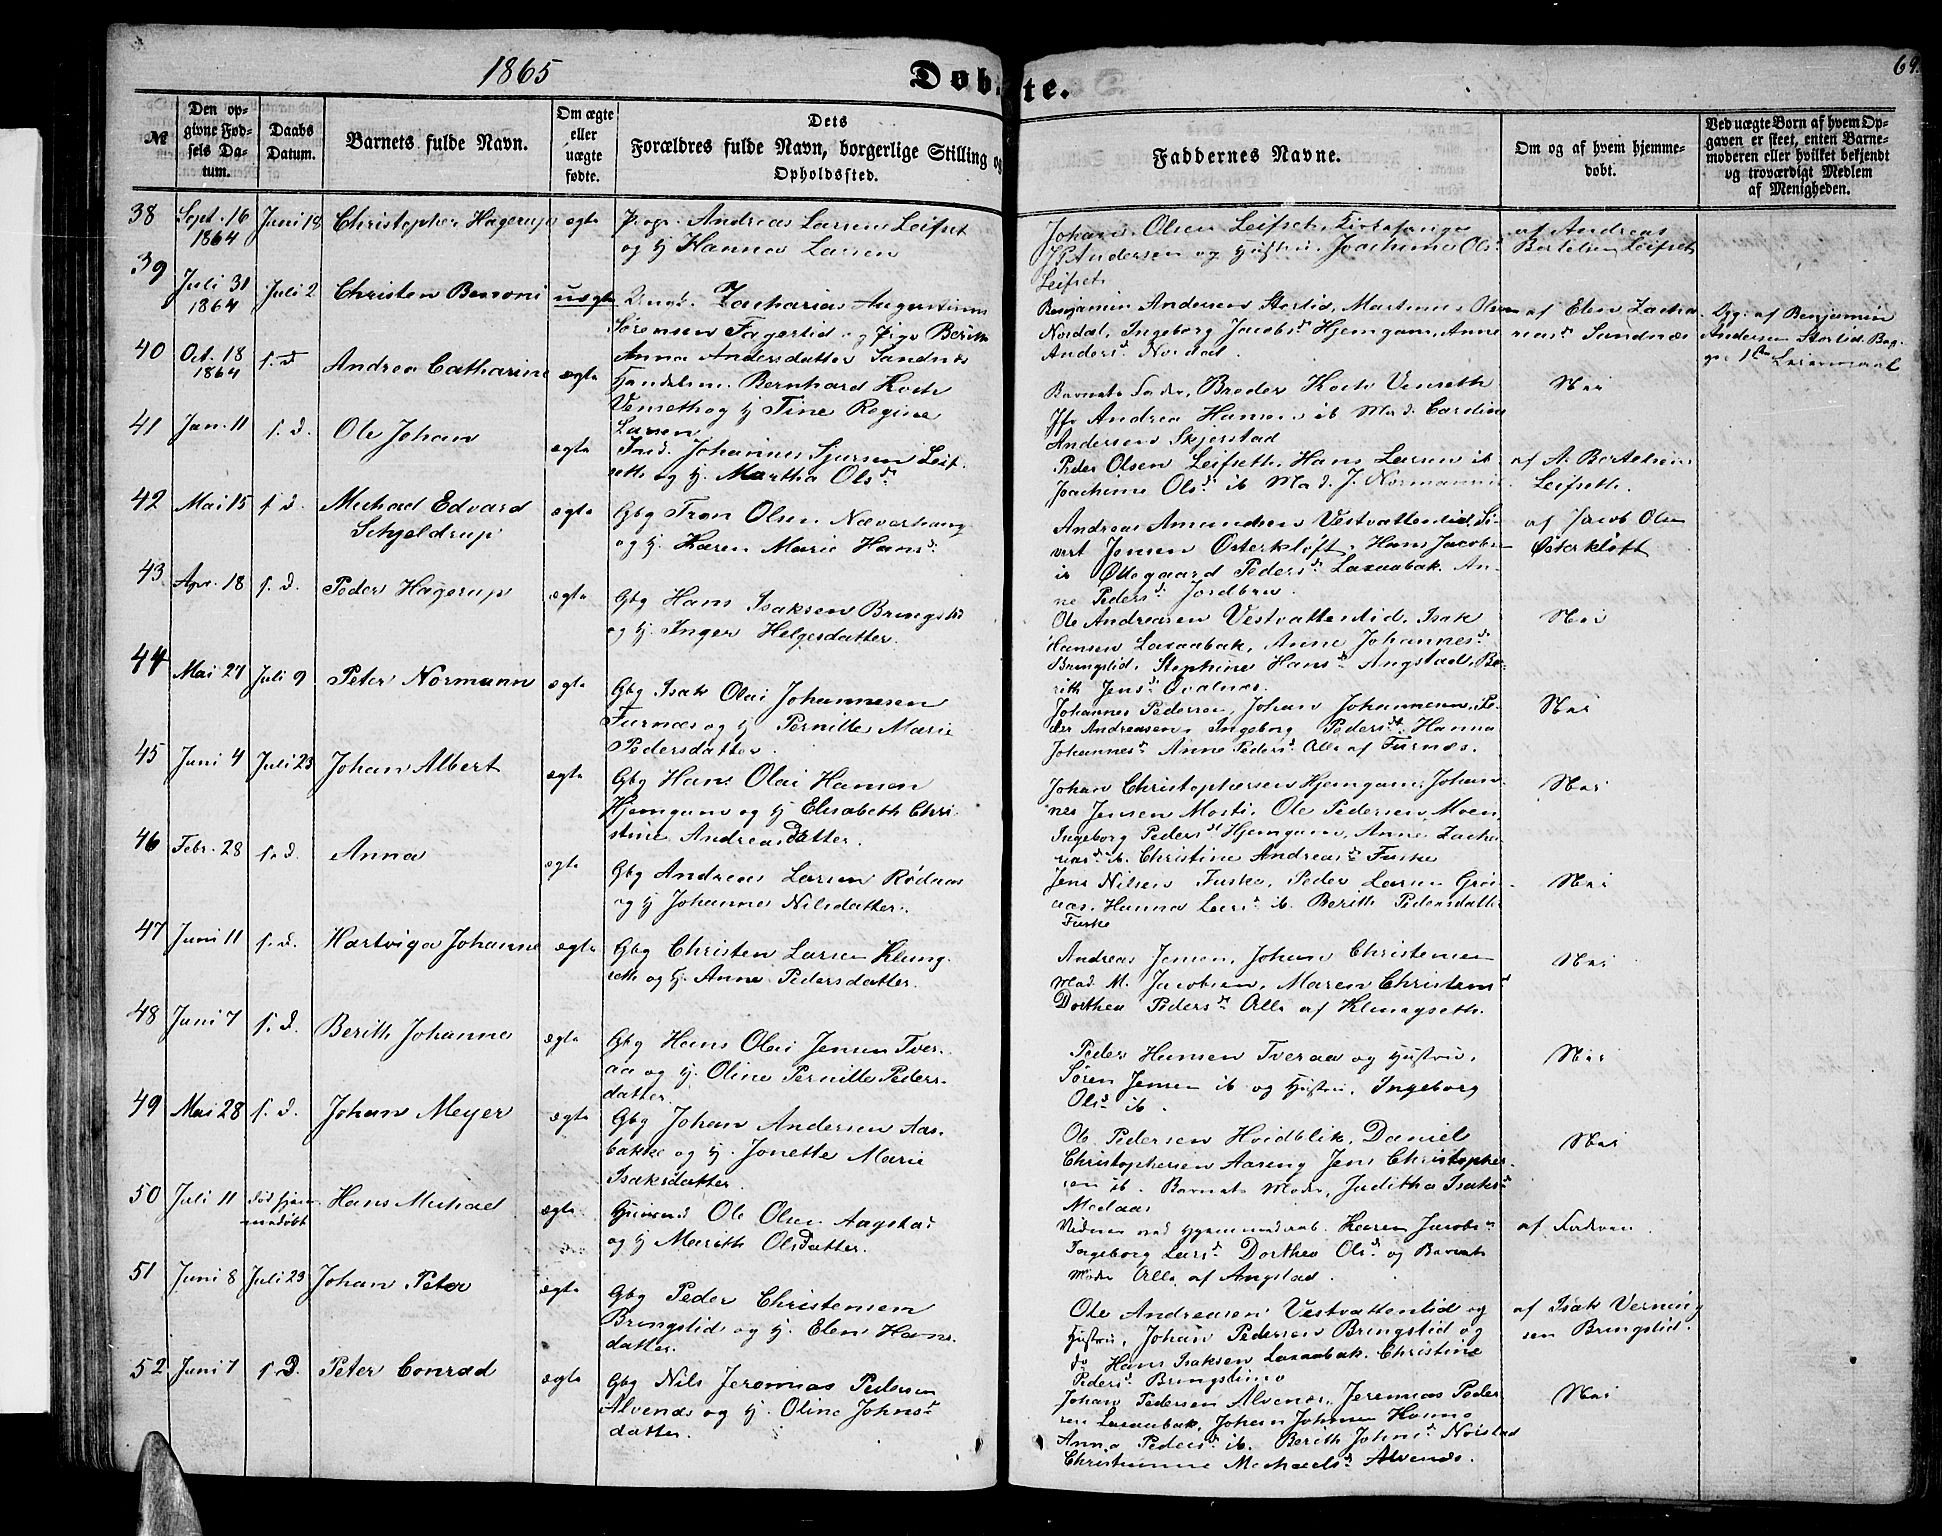 1865
Døbte.
69.
№
Den opgivne Fødsels Datum.
Daabs Datum.
Barnets fulde Navn.
Om ægte eller uægte fødte.
Dets
Forældres fulde Navn, borgerlige Stilling og
Opholdssted.
Faddernes Navne.
Om og af hvem hjemmedøbt.
Ved uægte Børn af hvem Opgaven er skeet, enten Barnemoderen eller hvilket bekjendt og troværdigt Medlem af Menigheden.
38 Sept. 16 1864 Juni 18 Christopher Hagerup ægte
Andreas Larsen Leifset
og hj Hanna Larsen
Johan Olsen Leifset
Andersen og Hustru, Joachime Ols
Leifset
af Andreas
Bertelsen Leifset
39 Juli 31 1864 Juli 2 Christen Benoni uægte
Zacharias Augustinus
Sørensen Fagerlid og Pige Berith
Anna Andersdatter Sandnæs
Benjamin Andersen Storlid, Martinus Olsen
Nordal, Ingeborg Jacobsd Hjemgam, Anne
Andersd Nordal.
af Elen Zacha
riasd Sandnæs
Opg. af Benjamin
Andersen Storlid. Beg-
ges 1ste Leiermaal
40 Oct. 18 1864 s. D. Andrea Catharine ægte
Handelsm. Bernhard Koch
Venseth og hj Tine Regine
Larsen
Barnets Fader, Broder Koch Venseth
Jfr Andrea Hansen ib Mad. Caroline
Andersen Skjerstad
Nei
41 Jan. 11 s. D. Ole Johan ægte
Ind. Johannes Sjursen Leif
seth og hj. Martha Olsd
Peder Olsen Leifseth, Hans Larsen ib
Joachime Olsd ib Mad. J. Normann
af A. Bertelsen
Leifseth.
42 Mai 15 s. D. Michael Edvard
Schjeldrup ægte
Gbg Tron Olsen Næverhaug
og hj. Karen Marie Hansd
Andreas Amundsen Vestvattenlid, Si-
vert Jonsen Østerkløft, Hans Jacobsen
ib Øllegaard Pedersd Laxaabak. An-
ne Pedersd Jordbru.
af Jacob Olsen
Østerkløft
43 Apr. 18 s. D. Peder Hagerup ægte
Gbg Hans Isaksen Bringslid
og hj. Inger Helgesdatter.
Ole Andreasen Vestvattenlid, Isak
Hansen Laxaabak, Anne Johannesd
Bringslid, Stephine Hansd Angstad, Be-
rith Jensd Qvalnæs.
Nei
44 Mai 27 Juli 9 Peter Normann ægte
Gbg Isak Olai Johannesen
Furnæs og hj Pernille Marie
Pedersdatter.
Johannes Pedersen, Johan Johannesen, Pe-
der Andreasen, Ingeborg Pedersdt, Hanna
Johannesd Anne Pedersd Alle af Furnæs.
Nei
45 Juni 4 Juli 23 Johan Albert ægte
Gbg Hans Olai Hansen
Hjemgam og hj Elisabeth Chri-
stine Andreasdatter.
Johan Christophersen Hjemgam, Johan
nes Jensen Mosti, Ole Pedersen Moen,
Ingeborg Pedersdt Hjemgam, Anne Zacha
riasd ib. Christine Andreasd Fuske
Nei
46 Febr. 28 s. D. Anna ægte
Gbg Andreas Larsen Rødaas
og hj Johanna Nilsdatter.
Jens Nilsen Fuske, Peder Larsen Grøn-
aas, Hanna Larsd ib. Berith Pedersdatter
Fuske
Nei
47 Juni 11 s. D. Hartviga Johanne ægte
Gbg Christen Larsen Klung
seth og hj. Anne Pedersdatter.
Andreas Jensen, Johan Christensen
Mad. M. Jacobsen, Maren Christensd
Dorthea Pedersd Alle af Klungseth.
Nei
48 Juni 7 s. D. Berith Johanna ægte
Gbg Hans Olai Jensen Tver-
aa og hj. Oline Pernille Peders-
datter.
Peder Hansen Tveraa og Hustru,
Søren Jensen ib og Hustru, Ingeborg
Olsd ib.
Nei
49 Mai 28 s. D. Johan Meyer ægte
Gbg Johan Andersen Aas-
bakke og hj. Jonette Marie
Isaksdatter.
Ole Pedersen Hvidblik, Daniel
Christophersen Aaseng Jens Christopher-
sen ib. Barnets Moder, Juditha Isaksd
Medaas
Nei
50 Juli 11 død hjem-
medøbt Hans Michael ægte
Ole Olsen Angstad
og hj Marith Olsdatter.
Vidner ved Hjemmedaab. Karen Jacobsd
Ingeborg Larsd Dorthea Olsd og Barnets
Moder Alle af Angstad.
af Faderen
51 Juni 8 Juli 23 Johan Peter ægte
Gbg Peder Christensen
Bringslid og hj. Elen Hans-
datter.
Ole Andreasen Vestvattenlid og
Hustru, Johan Pedersen Bringslid og
do Hans Isaksen Laxaabak. Christine
Pedersd Bringslid
af Isak Verning
sen Bringslid.
52 Juni 7 s. D. Peter Conrad ægte
Gbg Nils Jeremias Pedersen
Alvenæs og hj. Oline Johns-
datter.
Johan Pedersen Alvenæs, Jeremias Peder
sen Laxaabak, Johan Johnsen
Anna Pedersd ib. Berith Johnsd Norstad
Christianne Michaelsd Alvenæs.
Nei